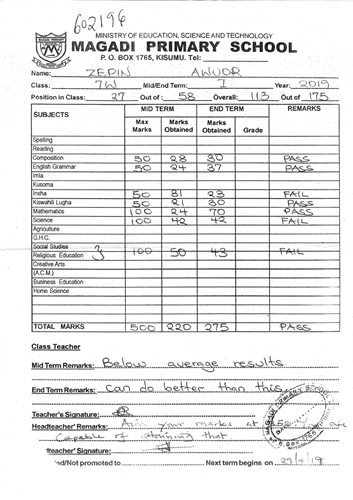 602196
MINISTRY OF EDUCATION, SCIENCE AND TECHNOLOGY
MAGADI PRIMARY SCHOOL
P. O. BOX 1765, KISUMU. Tel:
Name: ZEPIN AWUOR
Class: 7W Mid/End Term: 7 Year: 2019
Position in Class: 27 Out of: 58 Overall: 113 Out of 175
SUBJECTS MID TERM END TERM REMARKS
Max Marks Marks Obtained Marks Obtained Grade
Spelling
Reading
Composition 50 28 30 PASS
English Grammar 50 24 37 PASS
Imla
Kusoma
Insha 50 31 23 FAIL
Kiswahili Lugha 50 21 30 PASS
Mathematics 100 24 70 PASS
Science 100 42 42 FAIL
Agriculture
G.H.C.
Social Studies
Religious Education } 100 50 43 FAIL
Creative Arts
(A.C.M.)
Business Education
Home Science
TOTAL MARKS 500 220 275 PASS
Class Teacher
Mid Term Remarks: Below average results.
End Term Remarks: Can do better than this
Teacher's Signature:
Headteacher' Remarks: Aim your marks at are
Capable of attaining that
'teacher' Signature:
ed/Not promoted to Next term begins on 29/4/19
MAGADI PRIMARY SCHOOL